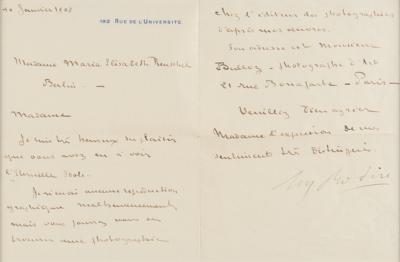 10 Janvier 1908
182 RUE DE L'UNIVERSITÉ
Madame Maria Elisabeth
Berlin. —
Madame
Je suis très heureux du plaisir
que vous avez eu à voir
l'Eternelle Idole.
Je n'ai aucune reproduction
graphique malheureusement
mais vous pouvez vous en
trouver une photographie
chez l'éditeur des photographies
d'après mes œuvres.
Son adresse est Monsieur
Bulloz - photographe d'Art
21 rue Bonaparte - Paris -
Veuillez
Madame l'expression de mes
sentiments très distingués.
Aug Rodin